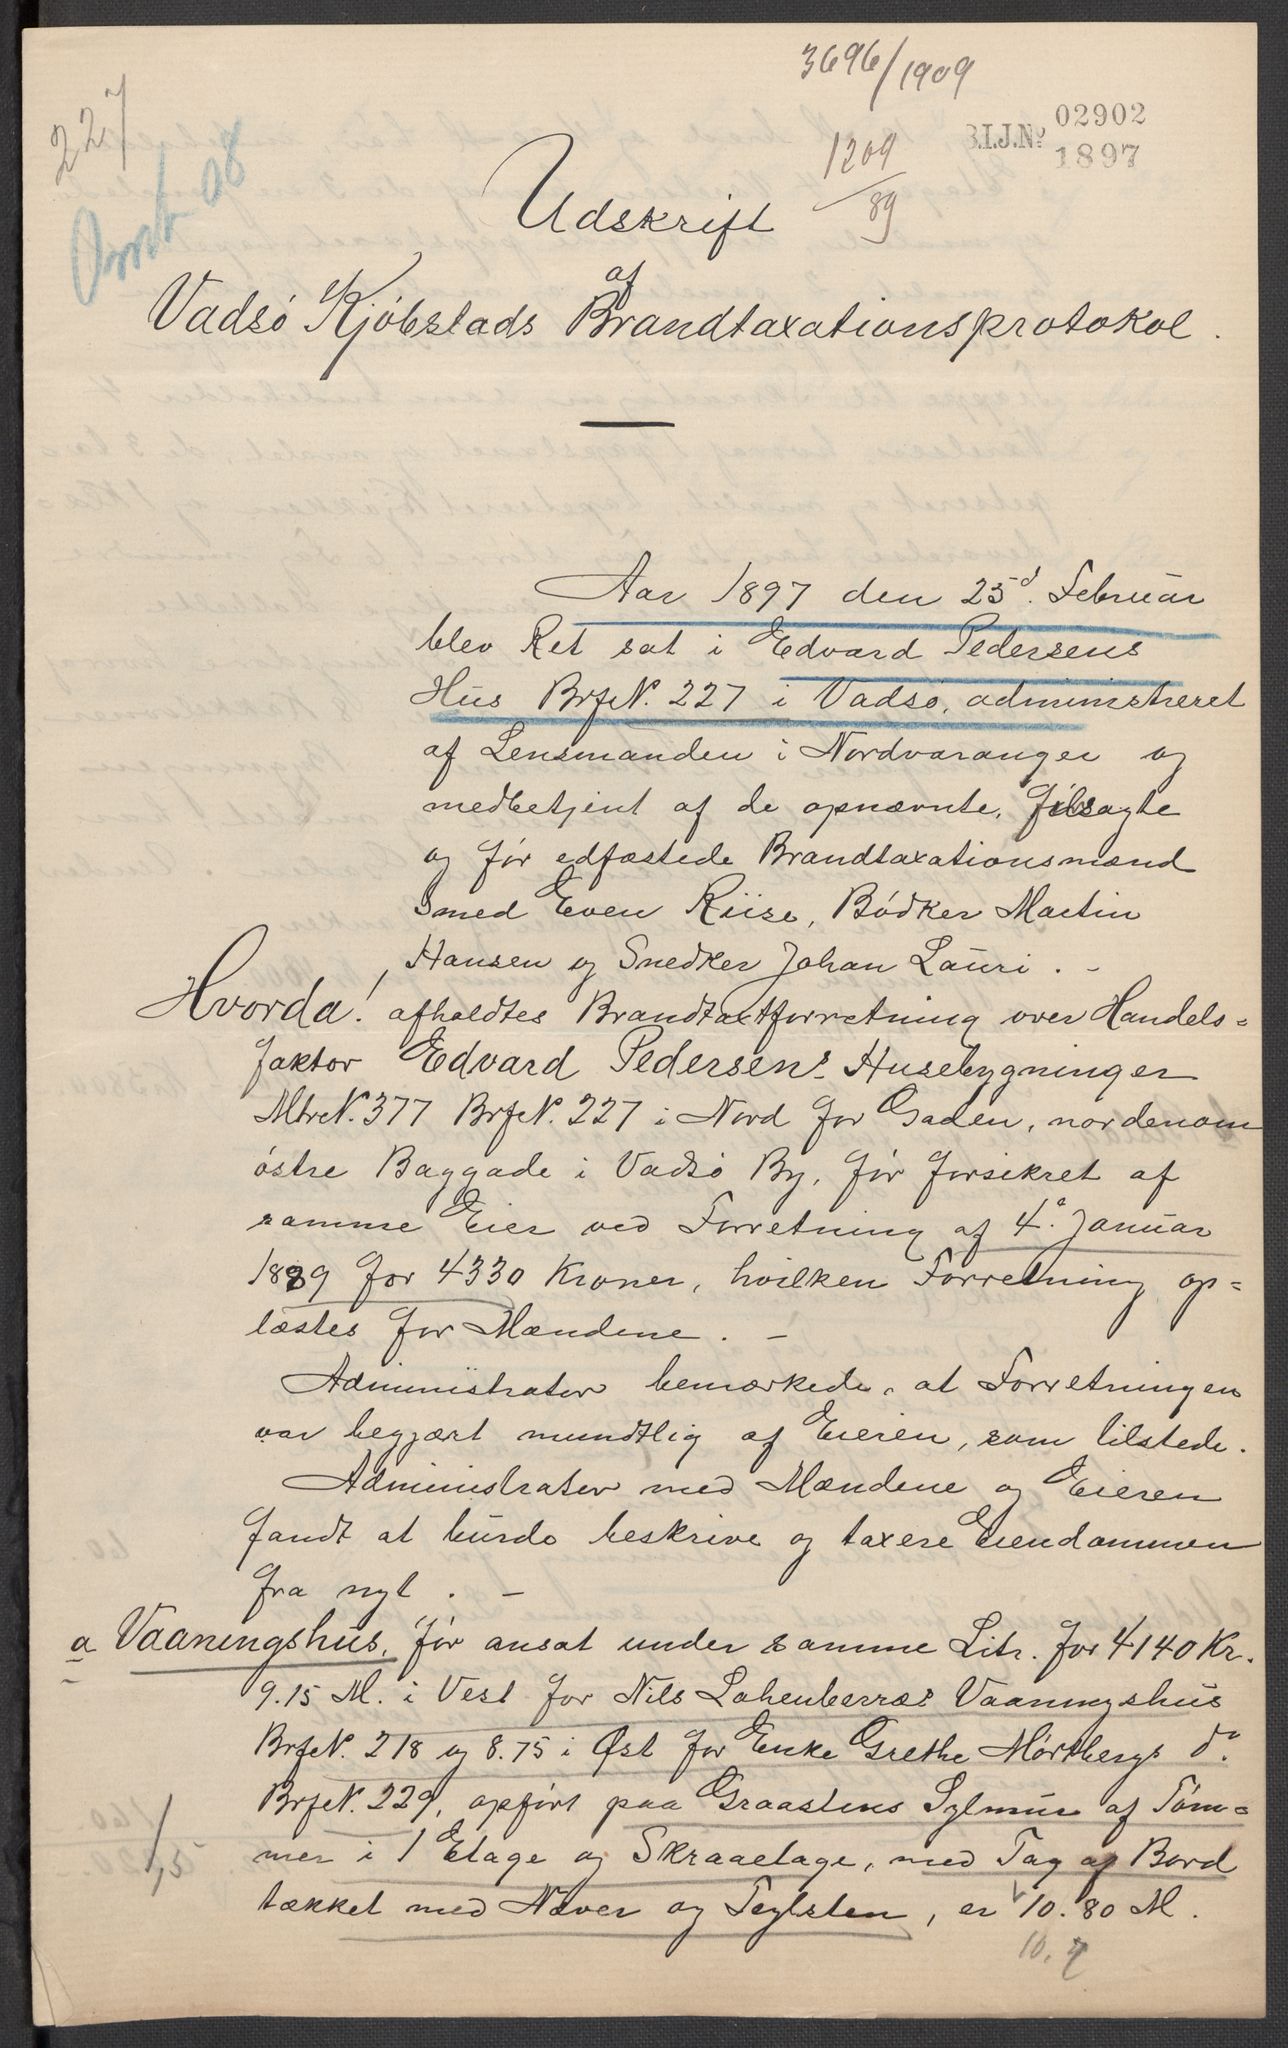 3696/1909
227
B.I.J.No 02902
1897
1209
89
Omb 98
Udskrift
af
Vadsö Kjöbstads Brandtaxationsprotokol.
Aar 1897 den 25d. Februar
blev Ret sat i Edvard Pedersens
Hus BrfeN. 227 i Vadsö, administreret
af Lensmanden i Nordvaranger og
medbetjent af de opnævnte, tilsagte
og før edfæstede Brandtaxationsmænd
Smed Even Riise, Bödker Martin
Hansen og Snedker Johan Lauri. -
Hvorda! afholdtes Brandtaxtforretning over Handels=
faktor Edvard Pedersens Husebygninger
MtreN. 377 BrfeN. 227 i Nord for Gaden, nordenom
östre Baggade i Vadsö By, før forsikret af
samme Eier ved Forretning af 4de Januar
1889 for 4330 Kroner, hvilken Forretning op=
læstes for Mændene. -
Administrator bemærkede, at Forretningen
var begjært mundtlig af Eieren, som tilstede.
Administrator med Mændene og Eieren
fandt at burde beskrive og taxere Eiendommen
fra nyt. -
a Vaaningshus, før ansat under samme Litr. for 4140 Kr.
9.15 M. i Vest for Nils Vaaningshus
BrfeN. 218 og 8.75 i Øst for Enke Grethe Mörtbergs do.
BrfeN. 229, opført paa Graastens Sylmur af Töm=
mer i 1 Etage og Skraaetage, med Tag af Bord
tækket med Næver og Teglsten, er 10.80 M.
1/15
10.7